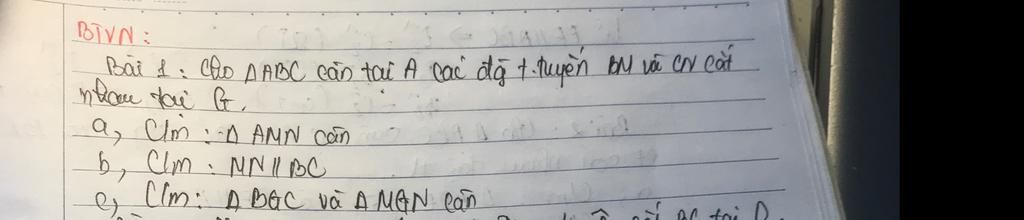 BTVN:
Bài 1: Cho ΔABC cân tại A các đg t.tuyến BM và CN cắt
nhau tại G.
a, C/m: Δ AMN cân
b, C/m: MN // BC
c, C/m: Δ BGC và Δ MGN cân
cắt BC tại D.